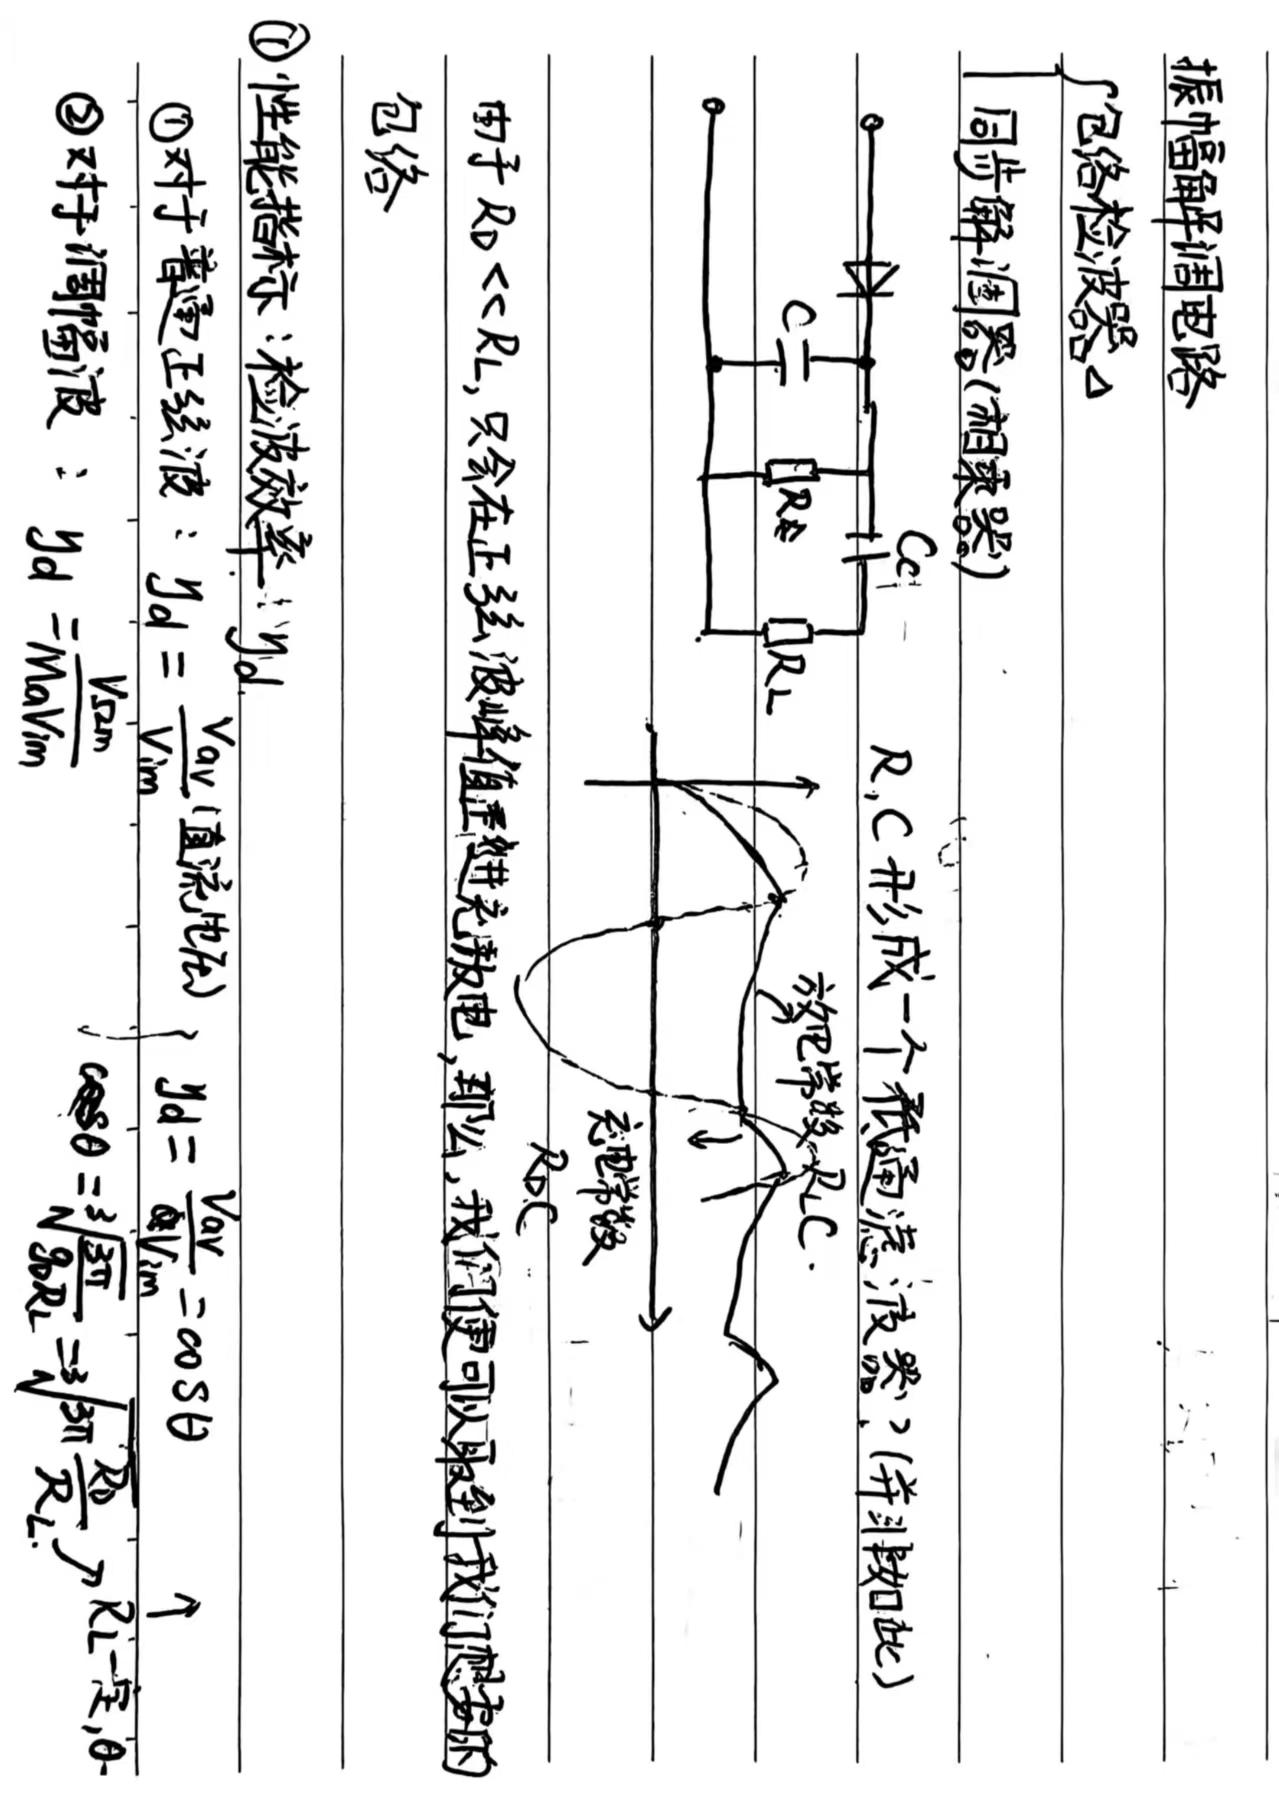 振幅解调电路
包络检波器△
同步解调器(相乘器)
C
R2
Cc
RL
R,C形成一个低通滤波器?(并非如此)
放电常数 RLC.
充电常数
RDC
由于RD<<RL,只会在正弦波峰值进行充放电,那么,我们便可以取到我们想要的
包络
① 性能指标:检波效率:ηd
①对于普通正弦波:ηd = Vav(直流电压)/Vim ηd = Vav/Vim = cosθ ↑
②对于调幅波:ηd = VΩm/MaVim cosθ = ³√(3π/gDRL) = ³√(3π RD/RL) RL一定,θ